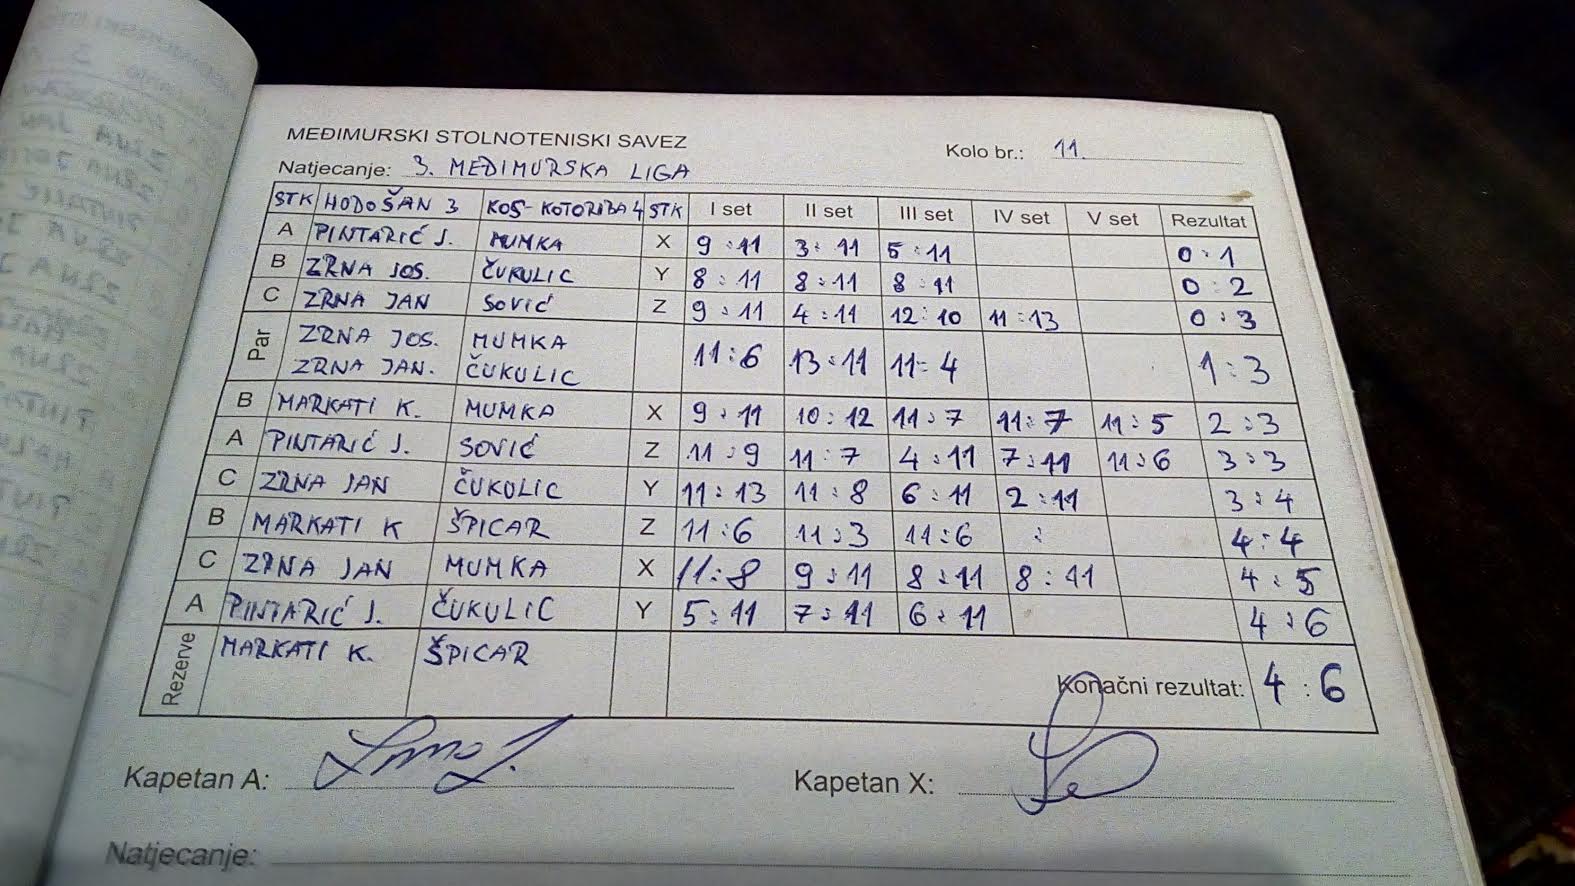 MEĐIMURSKI STOLNOTENISKI SAVEZ
Kolo br.: 11.
Natjecanje: 3. MEĐIMURSKA LIGA
STK HODOŠAN 3 KOŠ-KOTORIBA 4 STK I set II set III set IV set V set Rezultat
A PINTARIĆ J. MUMKA X 9:11 3:11 5:11 0:1
B ZRNA JOS. ČUKULIC Y 8:11 8:11 8:11 0:2
C ZRNA JAN SOVIĆ Z 9:11 4:11 12:10 11:13 0:3
Par ZRNA JOS. MUMKA 11:6 13:11 11:4 1:3
ZRNA JAN. ČUKULIC
B MARKATI K. MUMKA X 9:11 10:12 11:7 11:7 11:5 2:3
A PINTARIĆ J. SOVIĆ Z 11:9 11:7 4:11 7:11 11:6 3:3
C ZRNA JAN ČUKULIC Y 11:13 11:8 6:11 2:11 3:4
B MARKATI K ŠPICAR Z 11:6 11:3 11:6 : 4:4
C ZRNA JAN MUMKA X 11:8 9:11 8:11 8:11 4:5
A PINTARIĆ J. ČUKULIC Y 5:11 7:11 6:11 4:6
Rezerve MARKATI K. ŠPICAR
Konačni rezultat: 4:6
Kapetan A: Kapetan X:
Natjecanje: